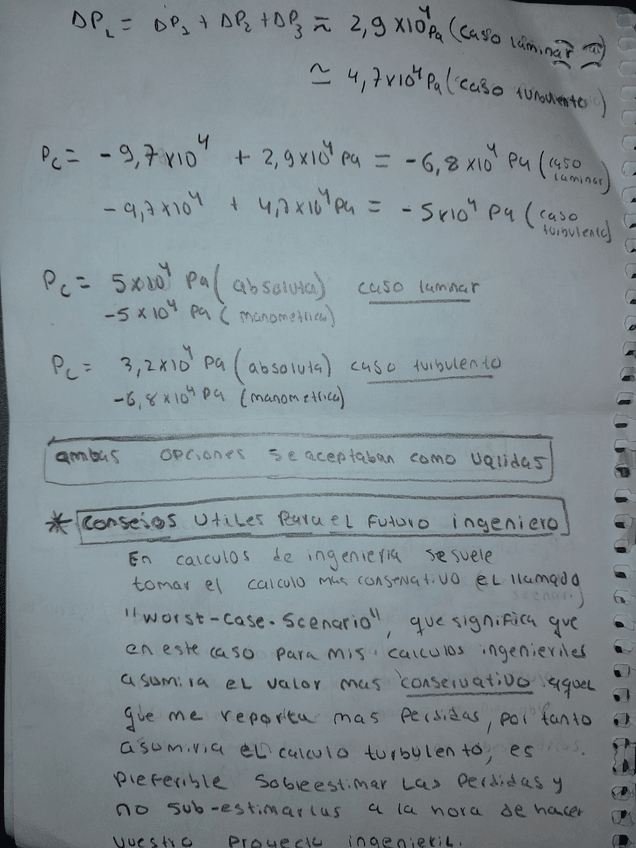 ΔP_L = ΔP1 + ΔP2 + ΔP3 ≈ 2,9x10^4 Pa (caso laminar)
≃ 4,7x10^4 Pa (caso turbulento)
Pc = -9,7x10^4 + 2,9x10^4 Pa = -6,8x10^4 Pa (caso laminar)
-9,7x10^4 + 4,7x10^4 Pa = -5x10^4 Pa (caso turbulento)
Pc = 5x10^4 Pa (absoluta) caso laminar
-5x10^4 Pa (manometrica)
Pc = 3,2x10^4 Pa (absoluta) caso turbulento
-6,8x10^4 Pa (manometrica)
ambas opciones se aceptaban como validas
* Consejos utiles para el futuro ingeniero
En calculos de ingenieria se suele
tomar el calculo mas conservativo el llamado
"worst-case-scenario", que significa que
en este caso para mis calculos ingenieriles
asumiria el valor mas conservativo aquel
que me reporta mas perdidas, por tanto
asumiria el calculo turbulento, es
preferible sobreestimar las perdidas y
no sub-estimarlas a la hora de hacer
vuestro proyecto ingenieril.